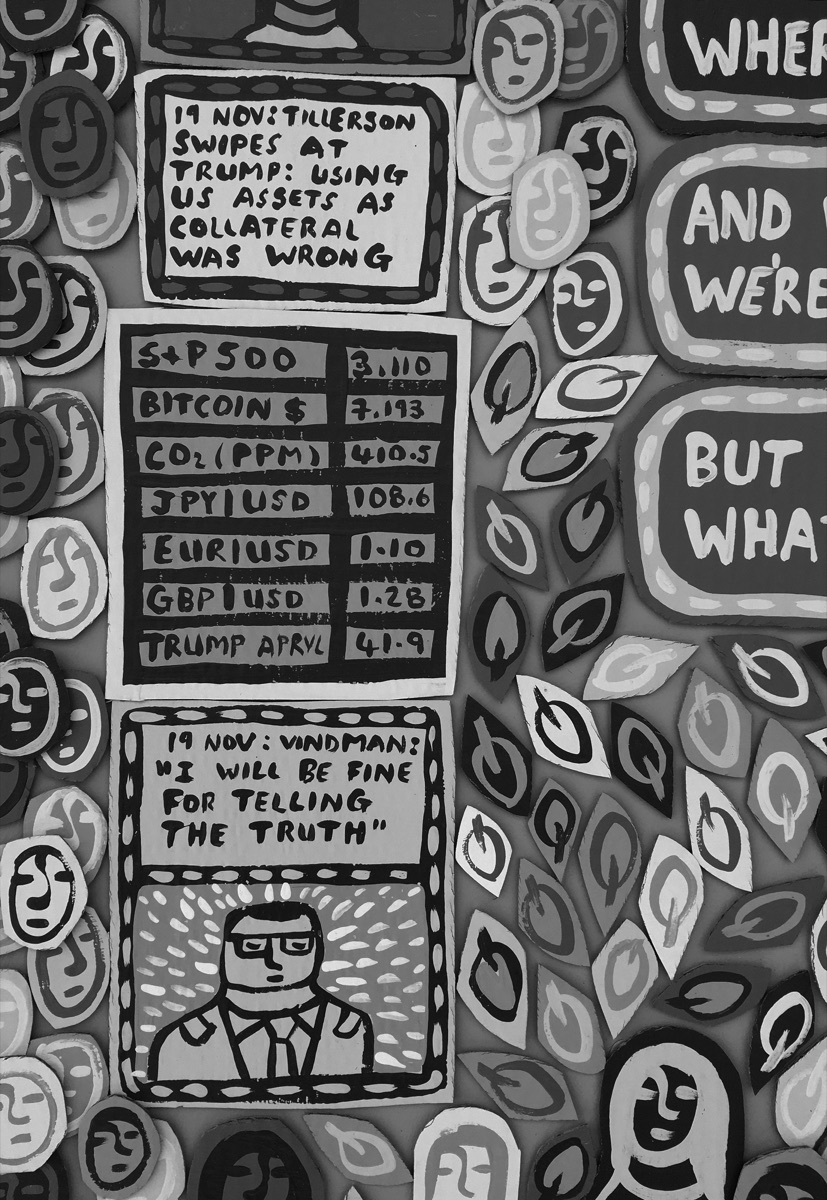 19 NOV: TILLERSON
SWIPES AT
TRUMP: USING
US ASSETS AS
COLLATERAL
WAS WRONG
S+P 500 3.110
BITCOIN $ 7.193
CO₂ (PPM) 410.5
JPY|USD 108.6
EUR|USD 1.10
GBP|USD 1.28
TRUMP APRVL 41.9
19 NOV: VINDMAN:
"I WILL BE FINE
FOR TELLING
THE TRUTH"
WHER
AND
WE'RE
BUT
WHAT